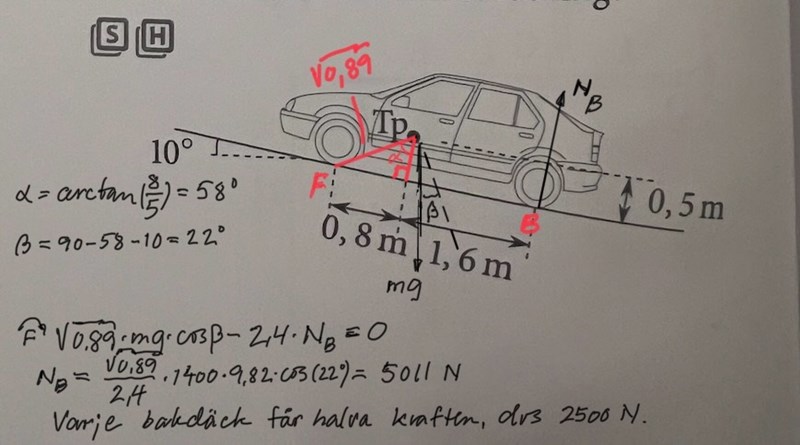 S H
√0,89
N_B
Tp
10°
α
F
α = arctan(8/5) = 58°
β
B
0,5 m
β = 90-58-10 = 22°
0,8 m
1,6 m
mg
F↷ √0,89 · mg · cosβ - 2,4 · N_B = 0
N_B = √0,89/2,4 · 1400 · 9,82 · cos(22°) = 5011 N
Varje bakdäck får halva kraften, dvs 2500 N.